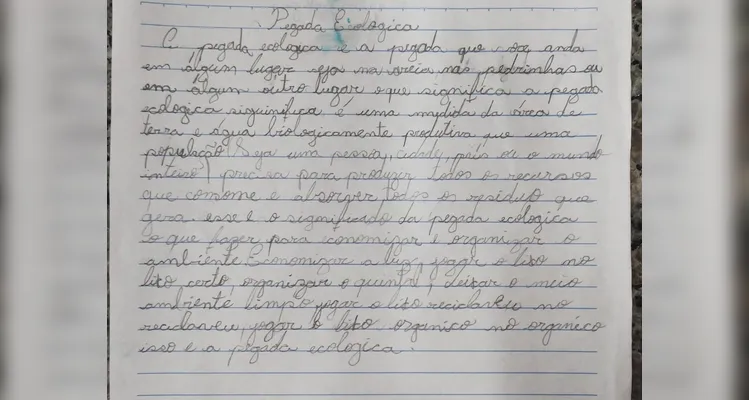 Pegada Ecologica
A pegada ecologica é a pegada que voce anda
em álgum lugar seja na areia nas pedrinhas ou
em álgum outro lugar o que significa a pegada
ecologica siguinifica é uma midida da área de
terra e água biologicamente produtiva que uma
população (Seja uma pessoa, cidade, país ou o mundo
inteiro) precisa para produzir todos os recursos
que comsome e absorver todos os residuos que
gera. esse é o significado da pegada ecologica
o que fazer para economizar e organizar o
ambiénte. Economizar a luz, jogar o lixo no
lixo certo, organizar o quintal, deixar o meio
ambiente limpo jogar o lixo reciclaveu no
reciclaveu, jogar o lixo organico no organico
isso é a pegada ecologica.